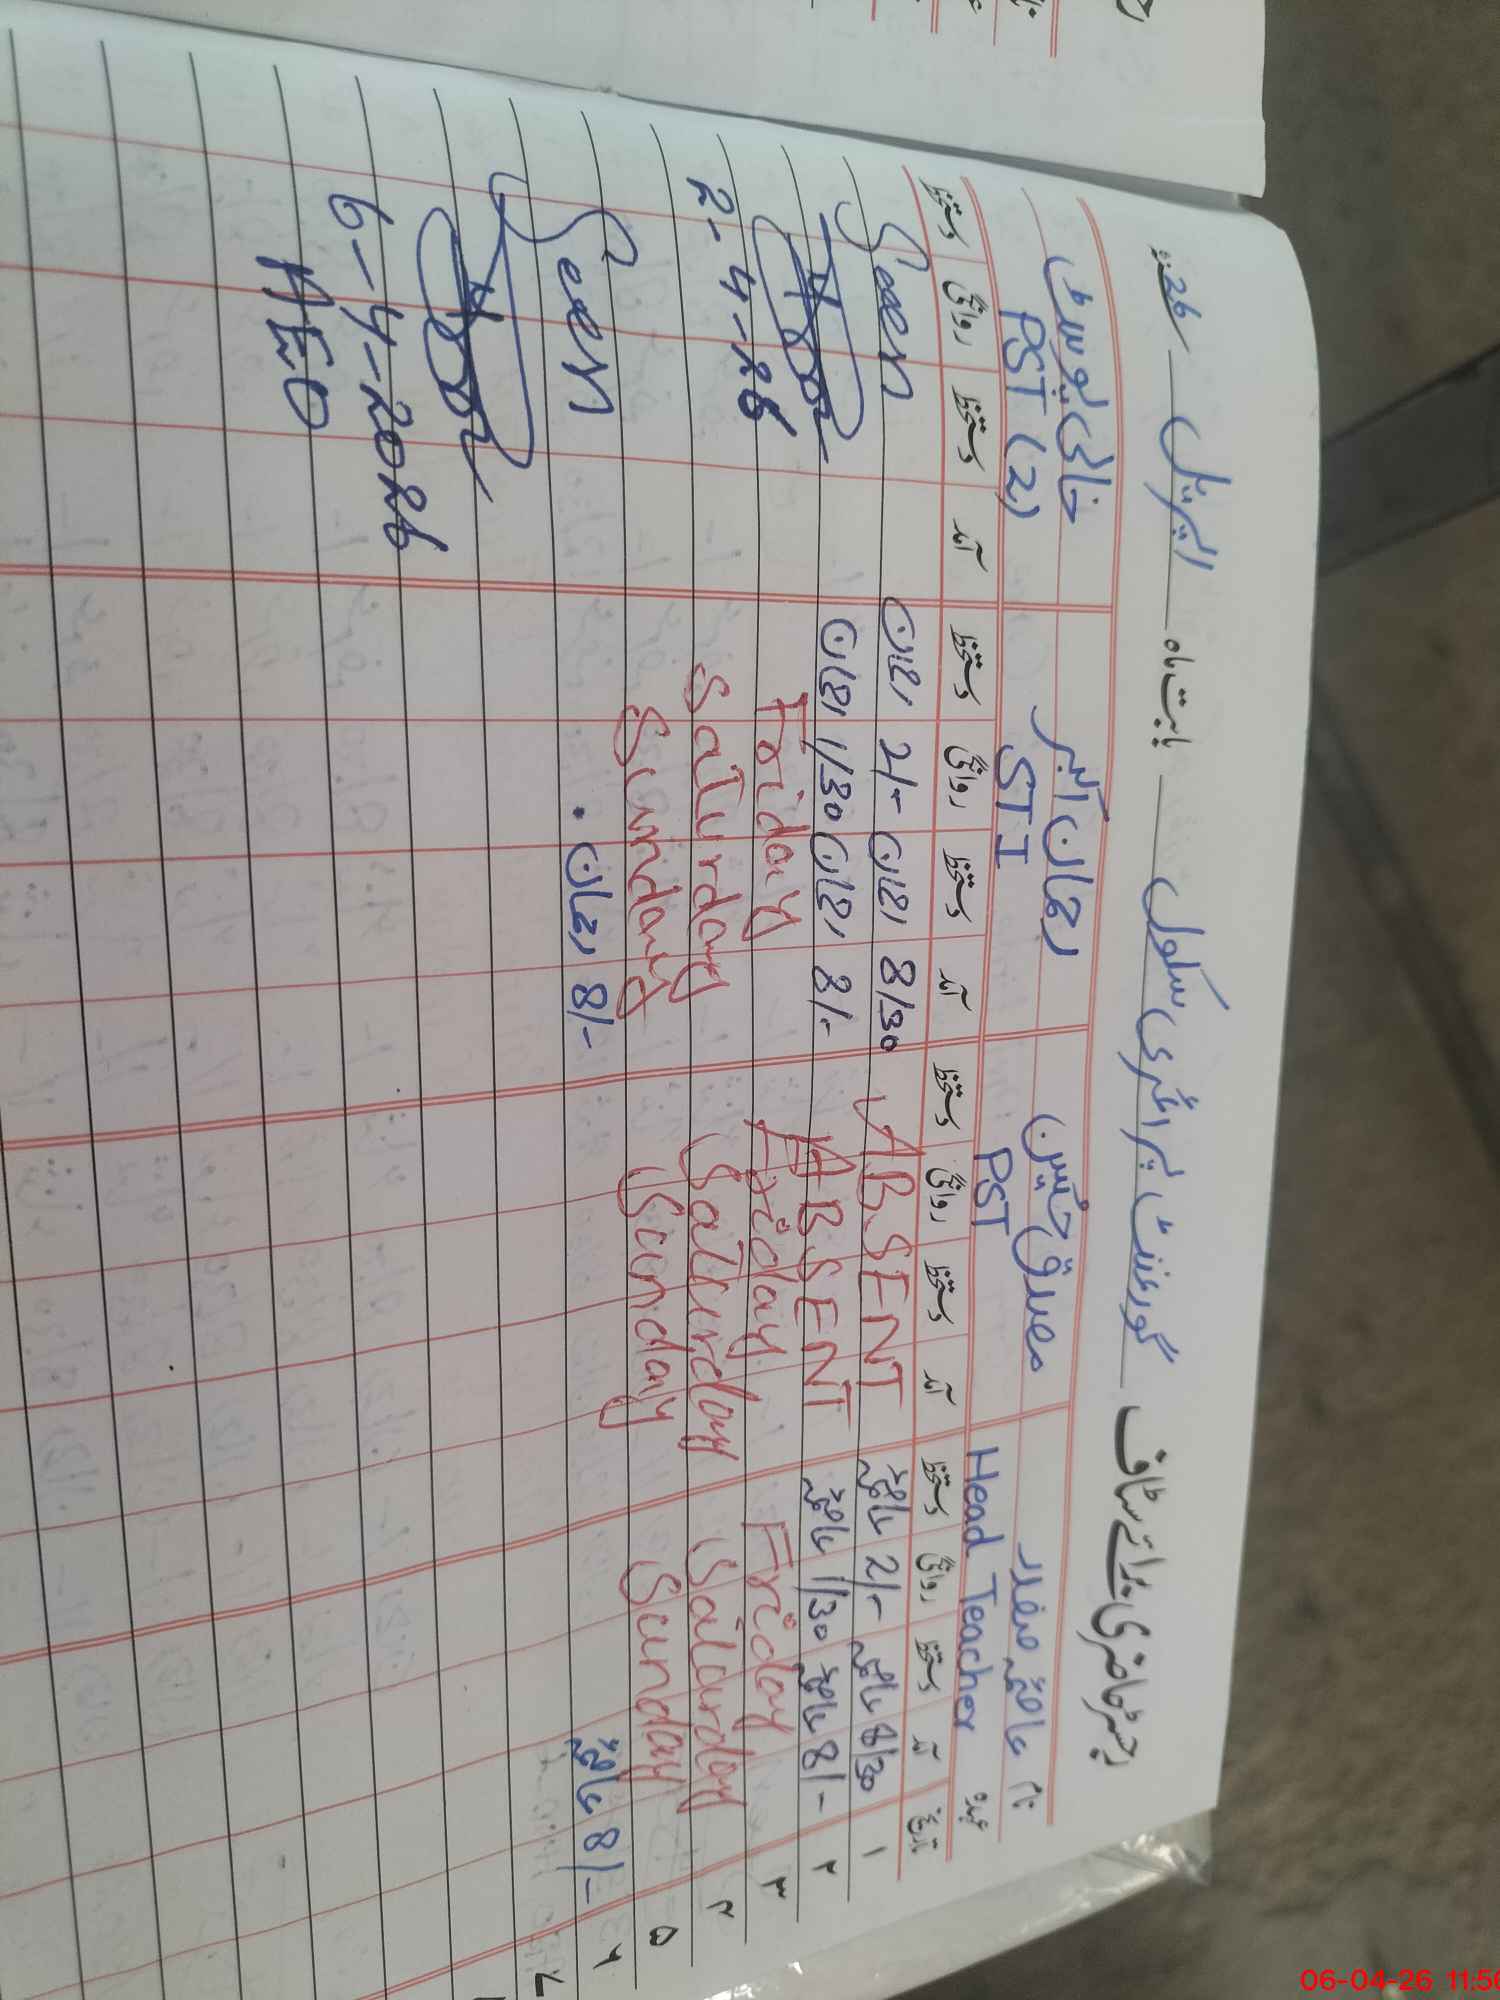 رجسٹر حاضری برائے سٹاف گورنمنٹ پرائمری سکول بابت ماہ اپریل
نام صفدر مصدق حسین رحمان اکبر خالی پوسٹ
عہدہ Head Teacher PST STI PST (2)
تاریخ آمد دستخط روانگی دستخط آمد دستخط روانگی دستخط آمد دستخط روانگی دستخط آمد دستخط روانگی دستخط
۱ 8/30 2/- ABSENT 8/30 رحمان 2/- رحمان Seen
۲ 8/- 1/30 ABSENT 8/- رحمان 1/30 رحمان
۳ Friday Friday Friday 2-4-26
۴ Saturday Saturday Saturday
۵ Sunday Sunday Sunday
۶ 8/- 8/- رحمان Seen
۷
6-4-2026
AEO
06-04-26 11:56